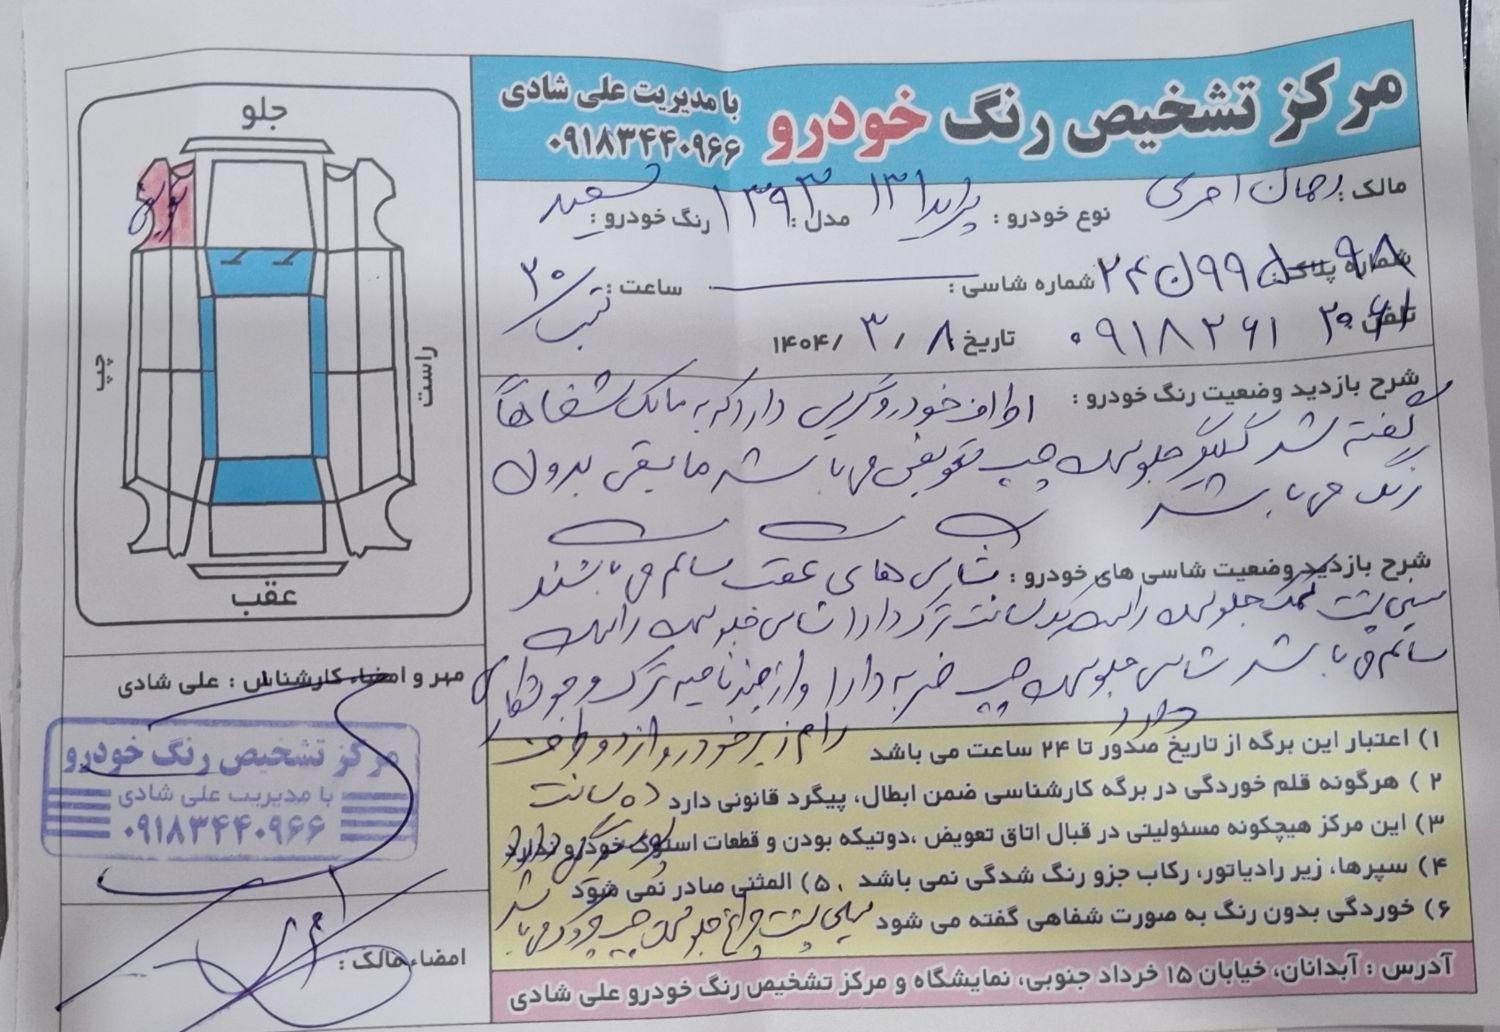 مرکز تشخیص رنگ خودرو
با مدیریت علی شادی
۰۹۱۸۳۴۴۰۹۶۶
مالک : رحمان احمدی نوع خودرو : پراید ۱۳۱ مدل : ۱۳۹۳ رنگ خودرو : سفید
شماره پلاک : ۹۸ ۹۹۵ ل ۲۴ شماره شاسی : ساعت : ۲۰ شب
تلفن : ۰۹۱۸۲۶۱ ۲۰۶۱ تاریخ ۸ / ۳ / ۱۴۰۴
شرح بازدید وضعیت رنگ خودرو : اطراف خودرو دارد که به مالک شفاهاً
گفته شد گلگیر جلو سمت چپ تعویض می باشد مابقی بدون
رنگ می باشد
شرح بازدید وضعیت شاسی های خودرو : شاسی های عقب سالم می باشند
سینی پشت جلو سمت راست یک سانت ترک دارد شاسی جلو سمت راست
سالم می باشد شاسی جلو سمت چپ ضربه دارد و از چند ناحیه ترک و جوشکاری
دارد
رام زیر خودرو از دو طرف
۵ سانت
پوسیدگی دارد
سینی پشت چراغ جلو سمت چپ می باشد
۱) اعتبار این برگه از تاریخ صدور تا ۲۴ ساعت می باشد
۲) هرگونه قلم خوردگی در برگه کارشناسی ضمن ابطال، پیگرد قانونی دارد
۳) این مرکز هیچگونه مسئولیتی در قبال اتاق تعویض ،دوتیکه بودن و قطعات استوک خودرو ندارد
۴) سپرها، زیر رادیاتور، رکاب جزو رنگ شدگی نمی باشد . ۵) المثنی صادر نمی شود
۶) خوردگی بدون رنگ به صورت شفاهی گفته می شود
آدرس : آبدانان، خیابان ۱۵ خرداد جنوبی، نمایشگاه و مرکز تشخیص رنگ خودرو علی شادی
جلو
تعویض
چپ
راست
عقب
مهر و امضاء کارشناس : علی شادی
مرکز تشخیص رنگ خودرو
با مدیریت علی شادی
۰۹۱۸۳۴۴۰۹۶۶
امضاء مالک :